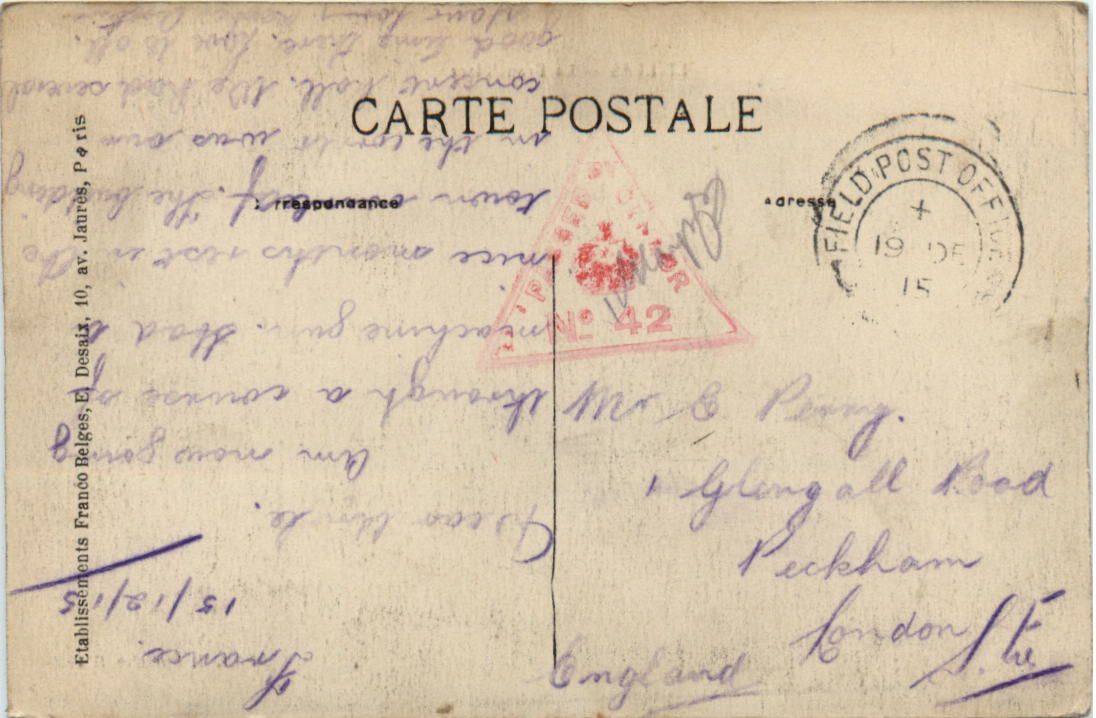 CARTE POSTALE
rrespondance
adresse
FIELD POST OFFICE
19 DE
15
PASSED BY CENSOR
No 42
Mr E Perry.
1 Glengall Road
Peckham
London S.E
England
France.
15/12/15
Dear Uncle.
Am now going
through a course of
machine gun. Had a
nice months rest in the
town of the building
in the was our
concert hall. We had several
good time there. Love to all.
Etablissements Franco Belges, E. Desaix, 10, av. Jaurès, Paris